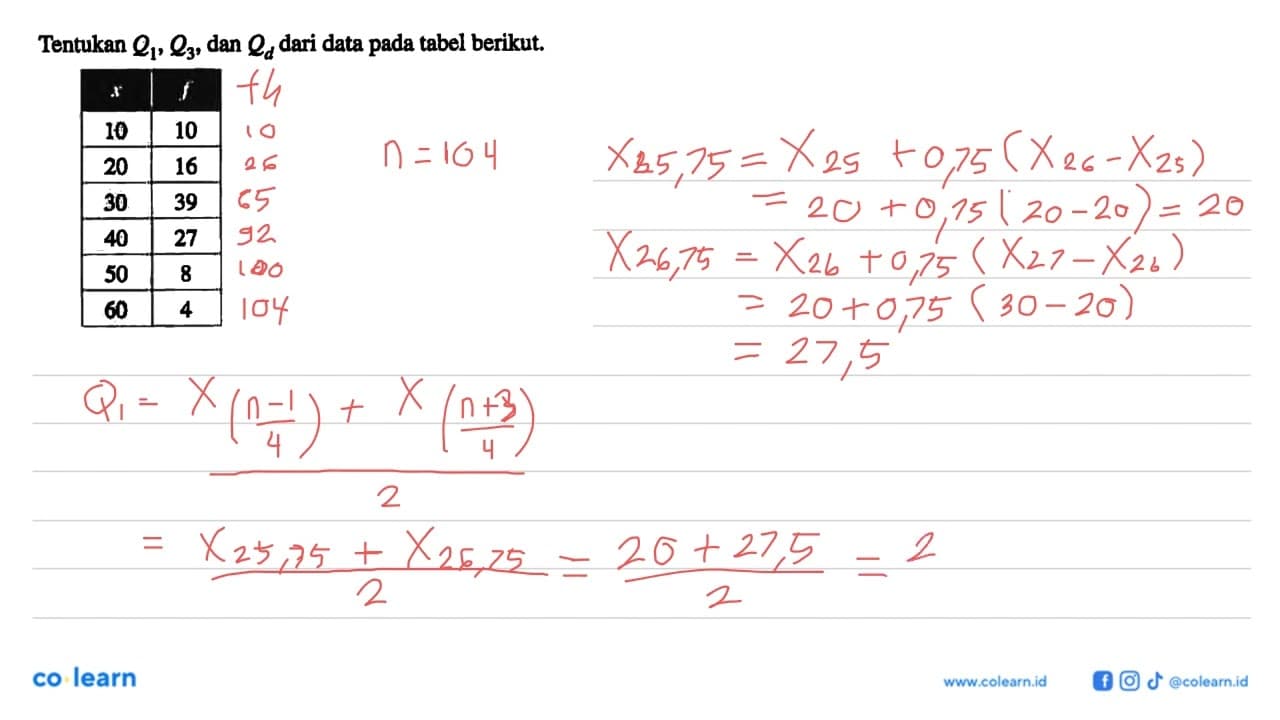 Tentukan Q₁, Q₃, dan Q_d dari data pada tabel berikut.
x f fk
10 10 10
20 16 26
30 39 65
40 27 92
50 8 100
60 4 104
n = 104
X25,75 = X25 + 0,75 (X26 - X25)
= 20 + 0,75 (20 - 20) = 20
X26,75 = X26 + 0,75 (X27 - X26)
= 20 + 0,75 (30 - 20)
= 27,5
Q₁ = X((n-1)/4) + X((n+3)/4)
2
= X25,75 + X26,75 = 20 + 27,5 = 2
2 2
co learn
www.colearn.id @colearn.id